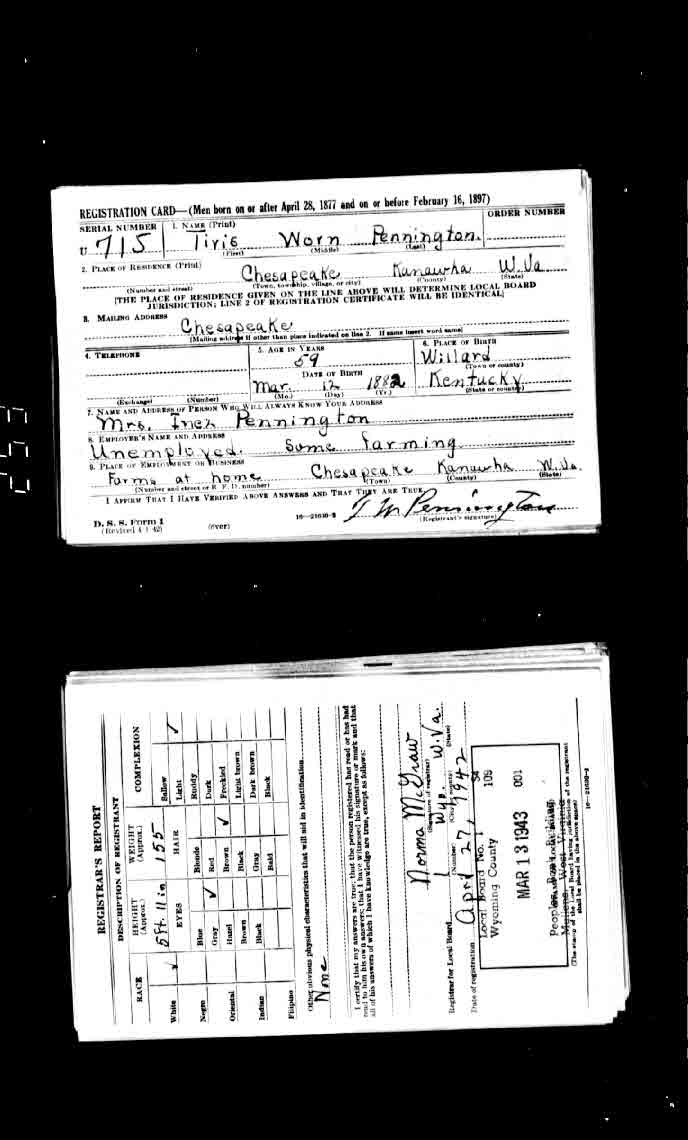 REGISTRATION CARD—(Men born on or after April 28, 1877 and on or before February 16, 1897)
SERIAL NUMBER 1. NAME (Print) ORDER NUMBER
U 715 Tiris Worn Pennington.
(First) (Middle) (Last)
2. PLACE OF RESIDENCE (Print)
Chesapeake Kanawha W.Va
(Number and street) (Town, township, village, or city) (County) (State)
[THE PLACE OF RESIDENCE GIVEN ON THE LINE ABOVE WILL DETERMINE LOCAL BOARD
JURISDICTION; LINE 2 OF REGISTRATION CERTIFICATE WILL BE IDENTICAL]
3. MAILING ADDRESS
Chesapeake
[Mailing address if other than place indicated on line 2. If same insert word same]
4. TELEPHONE 5. AGE IN YEARS 6. PLACE OF BIRTH
59 Willard
DATE OF BIRTH (Town or county)
Mar. 12 1882 Kentucky
(Exchange) (Number) (Mo.) (Day) (Yr.) (State or country)
7. NAME AND ADDRESS OF PERSON WHO WILL ALWAYS KNOW YOUR ADDRESS
Mrs. Inez Pennington
8. EMPLOYER'S NAME AND ADDRESS
Unemployed. some farming
9. PLACE OF EMPLOYMENT OR BUSINESS
Farms at home Chesapeake Kanawha W.Va.
(Number and street or R. F. D. number) (Town) (County) (State)
I AFFIRM THAT I HAVE VERIFIED ABOVE ANSWERS AND THAT THEY ARE TRUE.
T W Pennington
D. S. S. Form 1 (over) 16—21630-2 (Registrant's signature)
(Revised 4-1-42)
REGISTRAR'S REPORT
DESCRIPTION OF REGISTRANT
RACE HEIGHT (Approx.) WEIGHT (Approx.) COMPLEXION
5 Ft. 11 in 155 Sallow
White ✓ EYES HAIR Light ✓
Blue Blonde Ruddy
Negro Gray ✓ Red Dark
Oriental Hazel Brown ✓ Freckled
Brown Black Light brown
Indian Black Gray Dark brown
Bald Black
Filipino
Other obvious physical characteristics that will aid in identification
None
I certify that my answers are true; that the person registered has read or has had
read to him his own answers; that I have witnessed his signature or mark and that
all of his answers of which I have knowledge are true, except as follows:
Norma McGraw
(Signature of registrar)
Registrar for Local Board 1 Wyo. W.Va.
(Number) (City or county) (State)
Date of registration April 27, 1942
Local Board No. 1 54
Wyoming County 109
MAR 13 1943 001
(The stamp of the Local Board having jurisdiction of the registrant
shall be placed in the above space)
16—21630-2